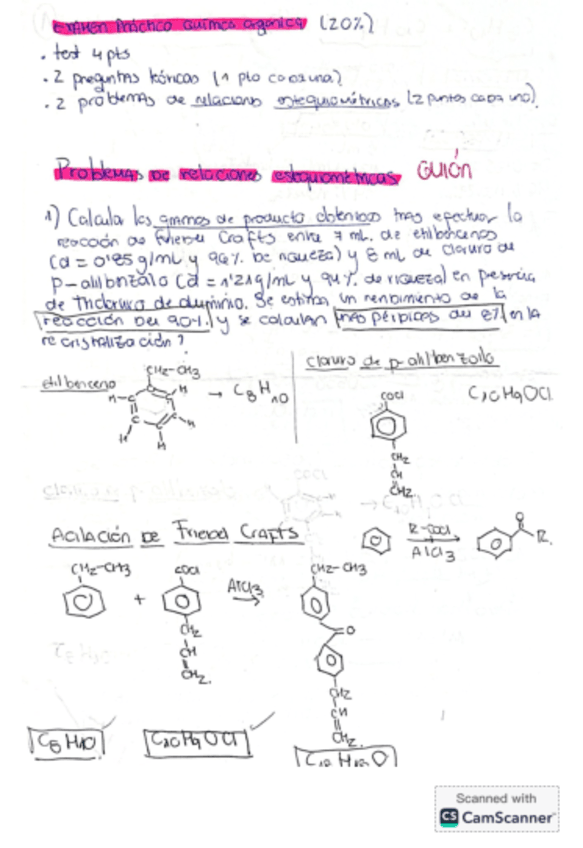 EXAMEN PRÁCTICO QUÍMICA ORGÁNICA (20%)
• test 4 pts
• 2 preguntas teóricas (1 pto cada una)
• 2 problemas de relaciones estequiométricas (2 puntos cada uno)
PROBLEMAS DE relaciones estequiométricas GUIÓN
1) Calcula los gramos de producto obtenidos tras efectuar la
reacción de Friedel Crafts entre 7 mL de etilbenceno
(d = 0'85 g/mL y 99% de riqueza) y 8 mL de cloruro de
p-alilbenzoilo (d = 1'21 g/mL y 94% de riqueza) en presencia
de Tricloruro de aluminio. Se estima un rendimiento de la
reacción del 90%. y se calculan pérdidas del 8% en la
recristalización?
etilbenceno
CH2-CH3
H
H
H
H
H
→ C8H10
cloruro de p-alilbenzoilo
COCl
C10H9OCl
CH2
CH
CH2
ACILACIÓN DE Friedel CRAFTS
R-COCl
AlCl3
O
R
CH2-CH3
+
COCl
CH2
CH
CH2
AlCl3
CH2-CH3
O
CH2
CH
CH2
C8H10
C10H9OCl
C18H18O
Scanned with
CS CamScanner